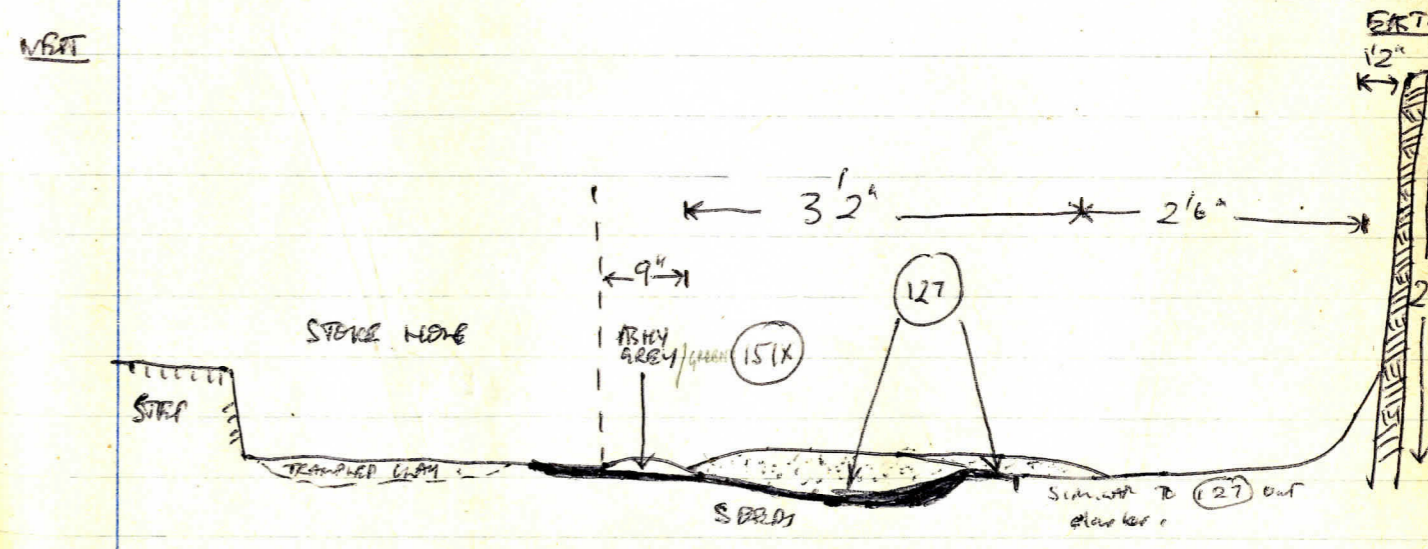 WEST
EAST
1'2"
3'2"
2'6"
9"
127
STOKE HOLE
ASHY
GREY/GREEN 151X
2
STEP
TRAMPLED CLAY
SEEDS
SIMILAR TO 127 BUT
darker.